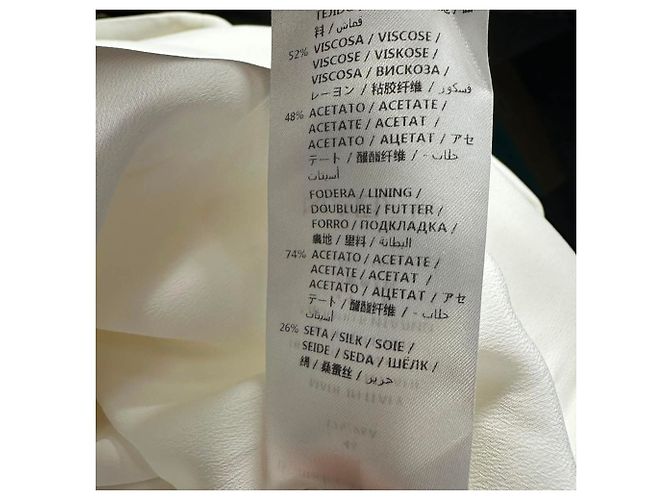 TEJIDO
料 / قماش
52% VISCOSA / VISCOSE /
VISCOSE / VISKOSE /
VISCOSA / ВИСКОЗА /
レーヨン / 粘胶纤维 / فسكوز
48% ACETATO / ACETATE /
ACETATE / ACETAT /
ACETATO / АЦЕТАТ / アセ
テート / 醋酯纤维 / خلات -
أسيتات
FODERA / LINING /
DOUBLURE / FUTTER /
FORRO / ПОДКЛАДКА /
裏地 / 里料 / البطانة
74% ACETATO / ACETATE /
ACETATE / ACETAT /
ACETATO / АЦЕТАТ / アセ
テート / 醋酯纤维 / خلات -
أسيتات
26% SETA / SILK / SOIE /
SEIDE / SEDA / ШЁЛК /
絹 / 桑蚕丝 / حرير